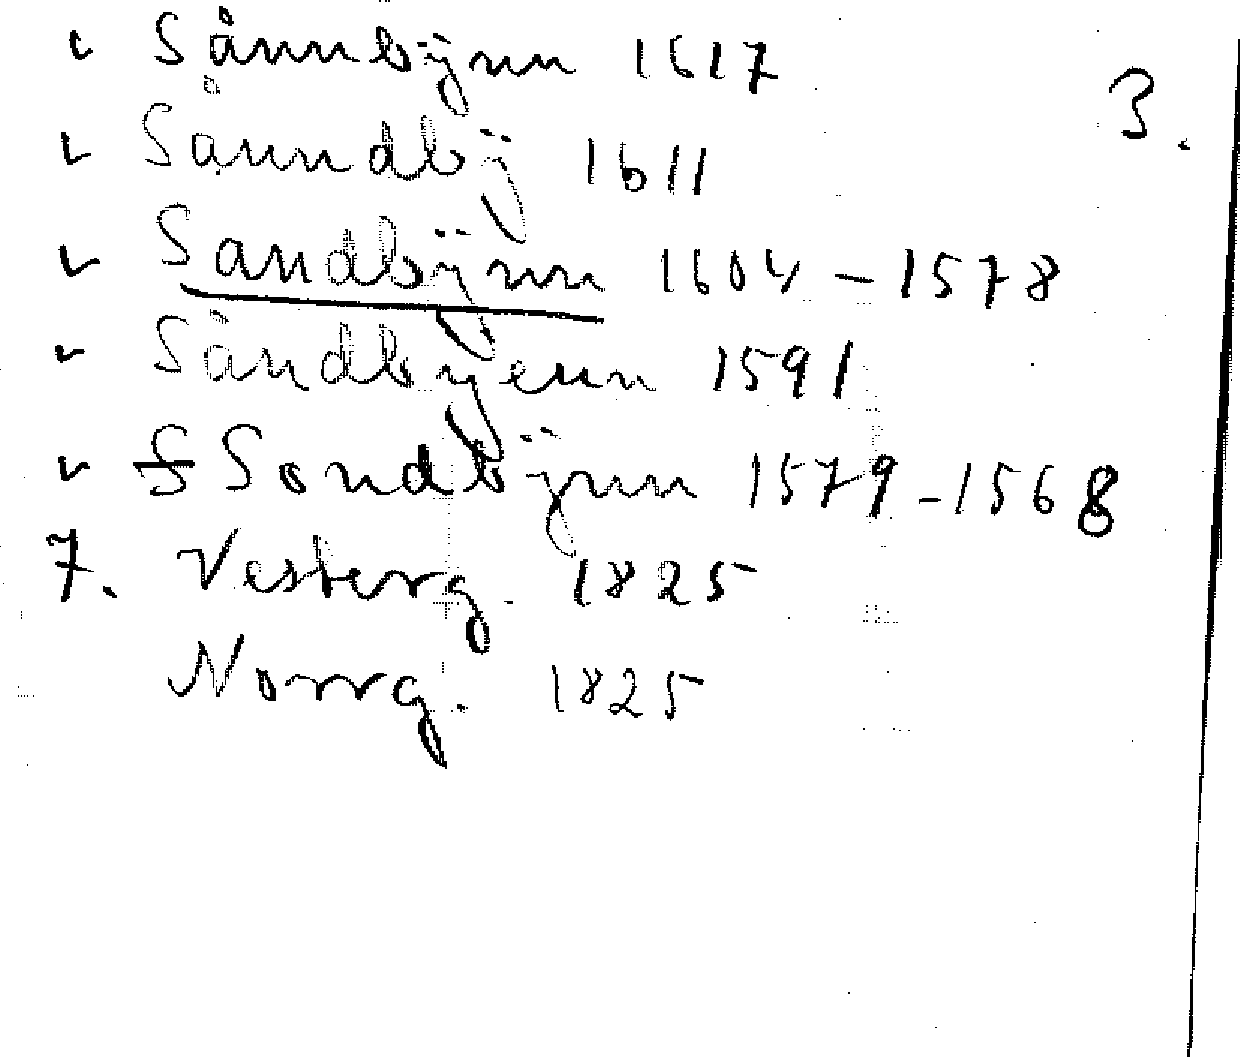 ✓ Sånnbÿnn 1617
3.
✓ Sånndbÿ 1611
✓ Sandbÿnn 1604 – 1578
✓ Såndbyenn 1591
✓ S Sondbÿnn 1579 – 1568
7. Vesterg. 1825
Norrg. 1825